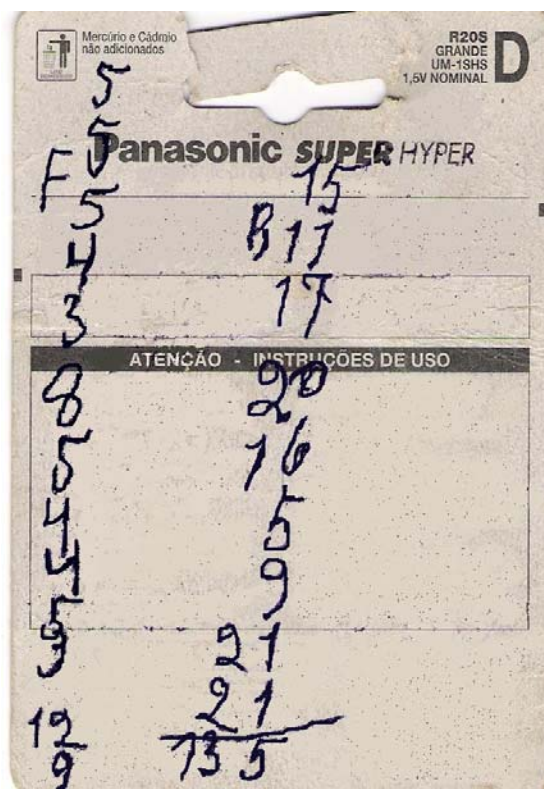 Mercúrio e Cádmio
não adicionados
R20S
GRANDE
UM-1SHS
1,5V NOMINAL
D
Panasonic SUPER HYPER
ATENÇÃO - INSTRUÇÕES DE USO
5
5
F
5
4
3
8
5
4
4
5
3
12
9
15
B 11
17
20
16
5
9
21
21
135